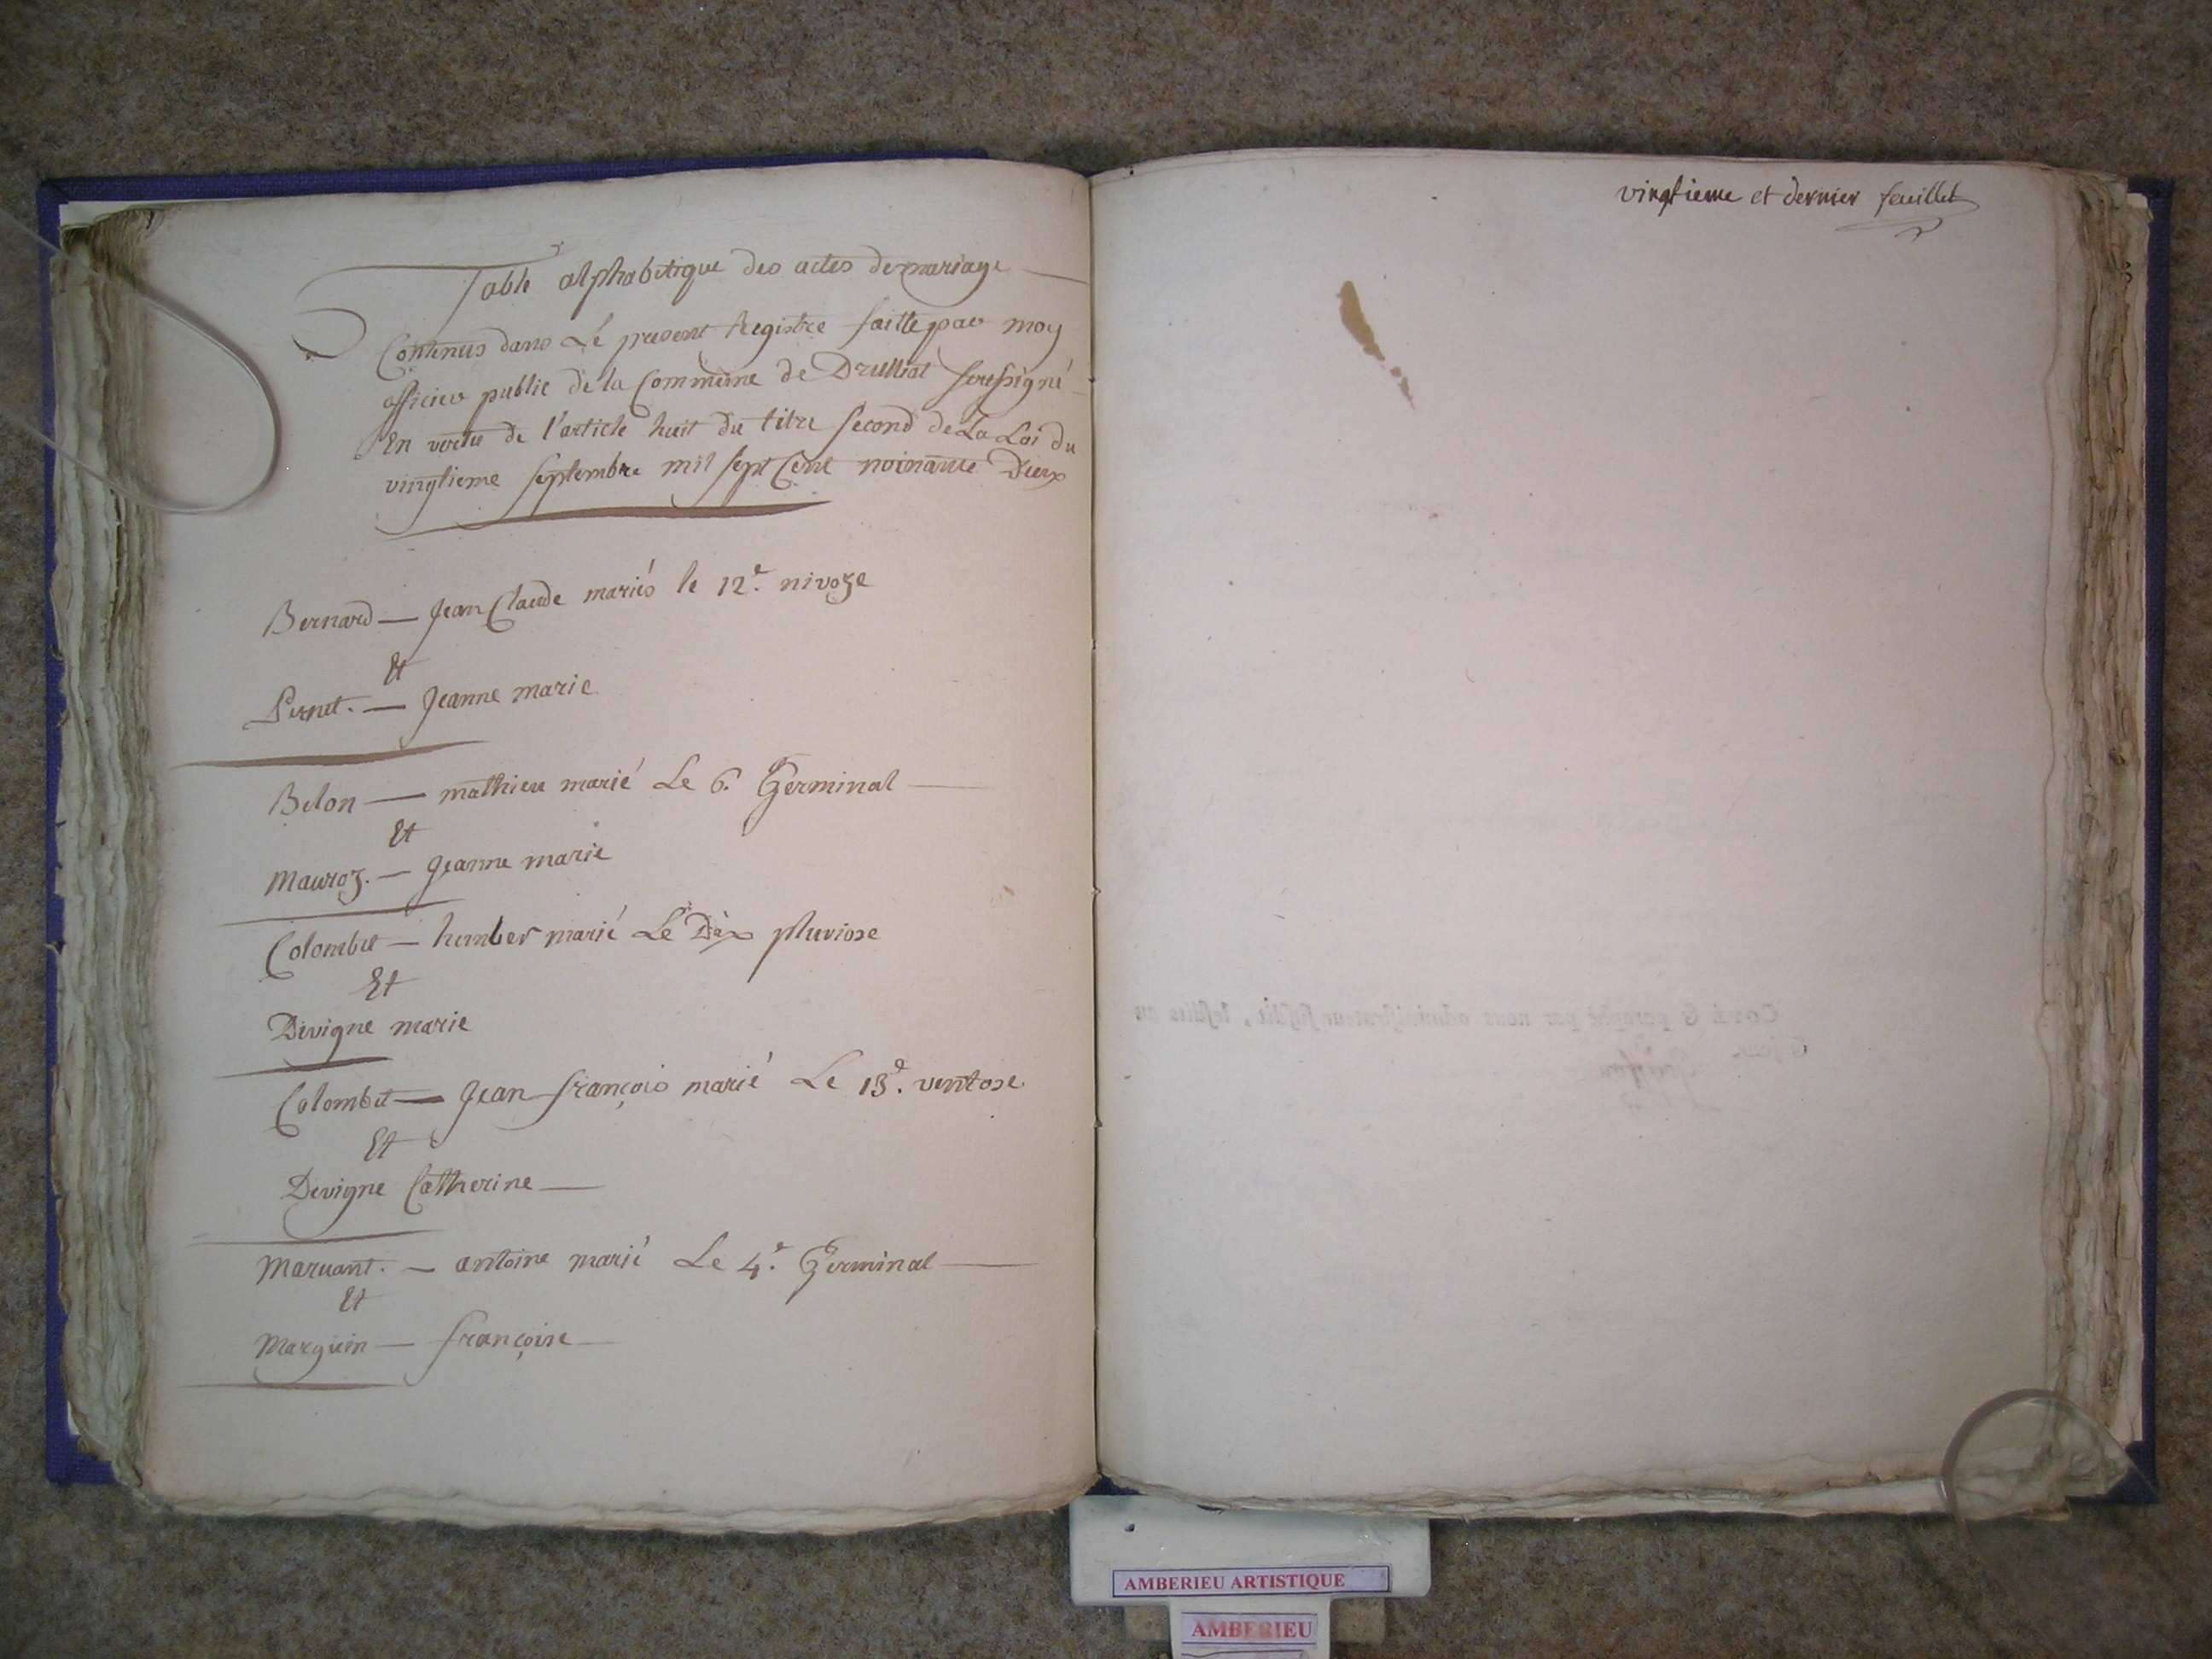 Table alphabetique des actes de mariage
Contenus dans Le present Registre faitte par moy
officier public de la Commune de Druilliat soussigné
En vertu de l'article huit du titre second de La Loi du
vingtieme septembre mil sept Cent nonante Deux
Bernard — Jean Claude mariés le 12e. nivoze
Et
Pernet. — Jeanne marie
Belon — mathieu marié Le 6. Germinal
Et
Mauroz. — Jeanne marie
Colombet — humber marié Le Dix pluviose
Et
Divigne marie
Colombet — Jean françois marié Le 13e. ventose
Et
Devigne Catherine
Maruant. — antoine marié Le 4e. Germinal
Et
Marguin — françoise
vingtieme et dernier feuillet
AMBERIEU ARTISTIQUE
AMBERIEU